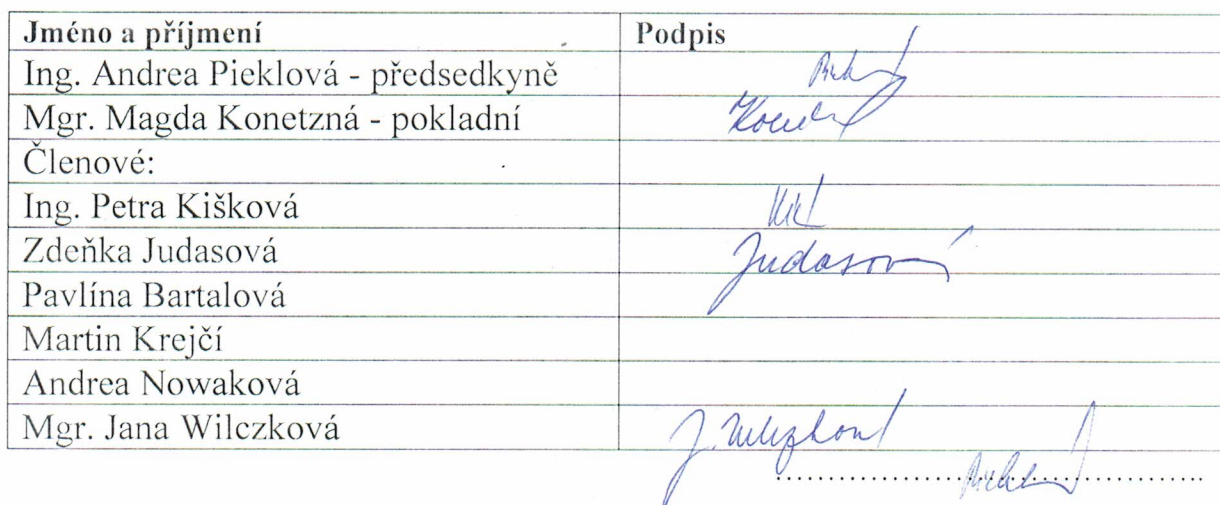 Jméno a příjmení Podpis
Ing. Andrea Pieklová - předsedkyně
Mgr. Magda Konetzná - pokladní
Členové:
Ing. Petra Kišková
Zdeňka Judasová Judasová
Pavlína Bartalová
Martin Krejčí
Andrea Nowaková
Mgr. Jana Wilczková